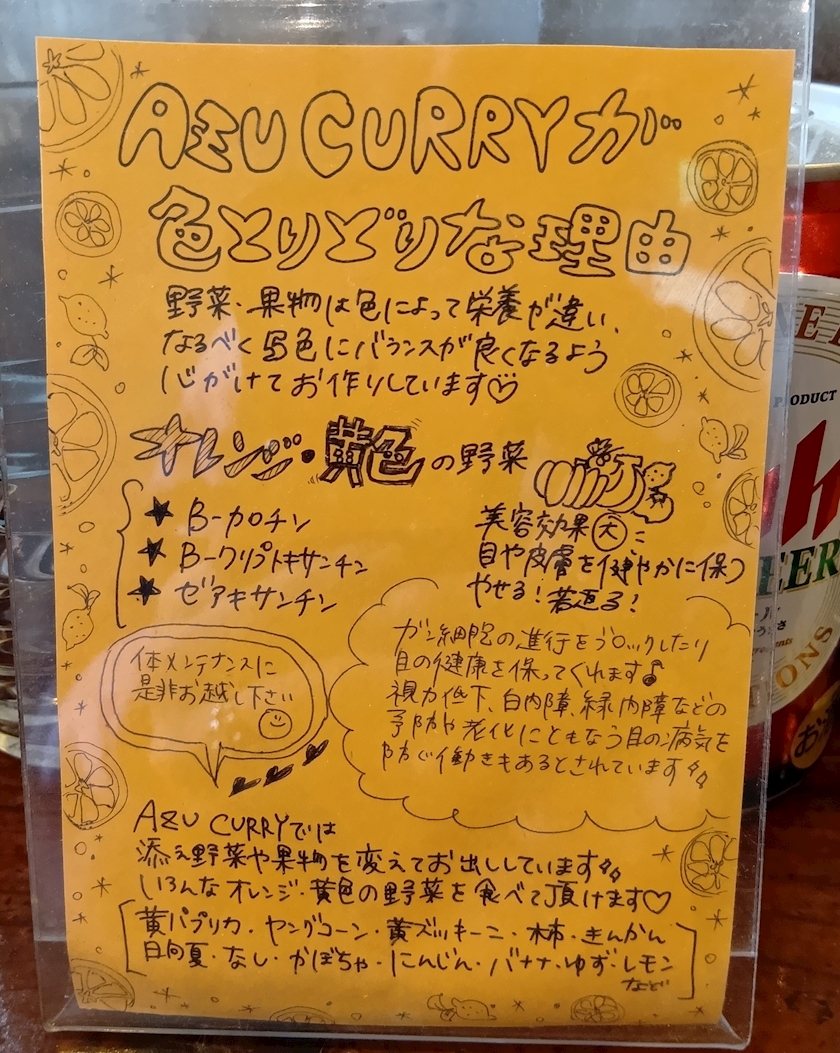 AZU CURRYが
色とりどりな理由
野菜・果物は色によって栄養が違い、
なるべく5色にバランスが良くなるよう
心がけてお作りしています♡
オレンジ・黄色の野菜
★ β-カロチン
★ β-クリプトキサンチン
★ ゼアキサンチン
美容効果大に
目や皮膚を健やかに保つ
やせる!若返る!
ガン細胞の進行をブロックしたり
目の健康を保ってくれます♪
視力低下、白内障、緑内障などの
予防や老化にともなう目の病気を
防ぐ働きもあるとされています
体メンテナンスに
是非お越し下さい
AZU CURRYでは
添え野菜や果物を変えてお出ししています
いろんなオレンジ・黄色の野菜を食べて頂けます♡
黄パプリカ・ヤングコーン・黄ズッキーニ・柿・きんかん
日向夏・なし・かぼちゃ・にんじん・バナナ・ゆず・レモン
など
PRODUCT
BEER